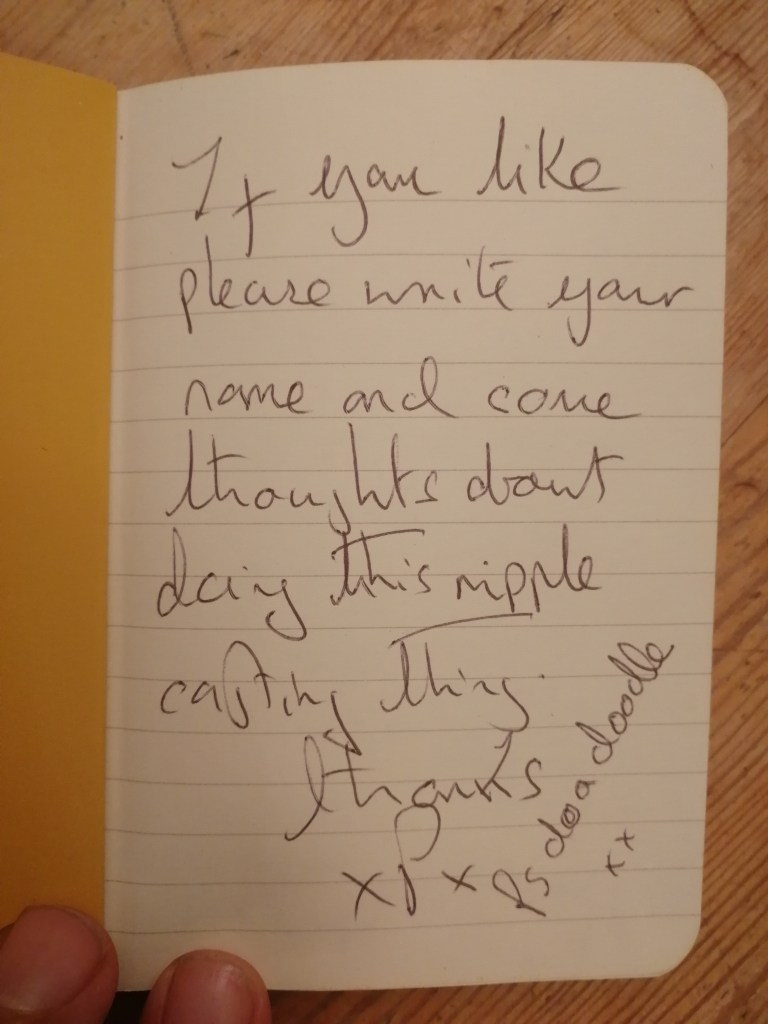 If you like
please write your
name and some
thoughts about
doing this nipple
casting thing.
thanks
x P x
Ps do a doodle
xx